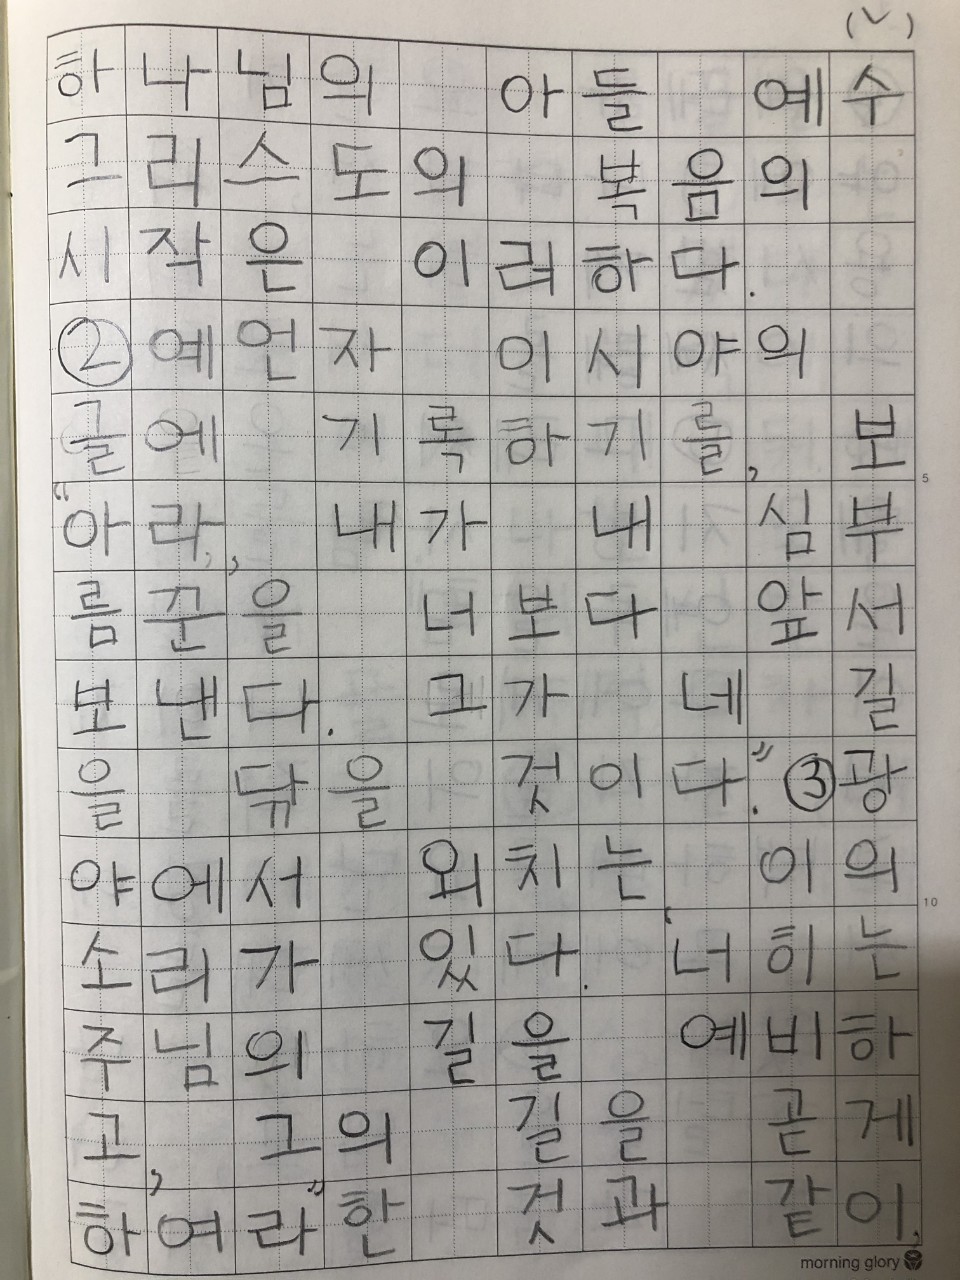 (V)
하나님의 아들 예수
그리스도의 복음의
시작은 이러하다.
② 예언자 이시야의
글에 기록하기를, 보
"아라, 내가 내 심부
름꾼을 너보다 앞서
보낸다. 그가 네 길
을 닦을 것이다." ③ 광
야에서 외치는 이의
소리가 있다. '너희는
주님의 길을 예비하
고, 그의 길을 곧게
하여라" 한 것과 같이,
5
10
morning glory